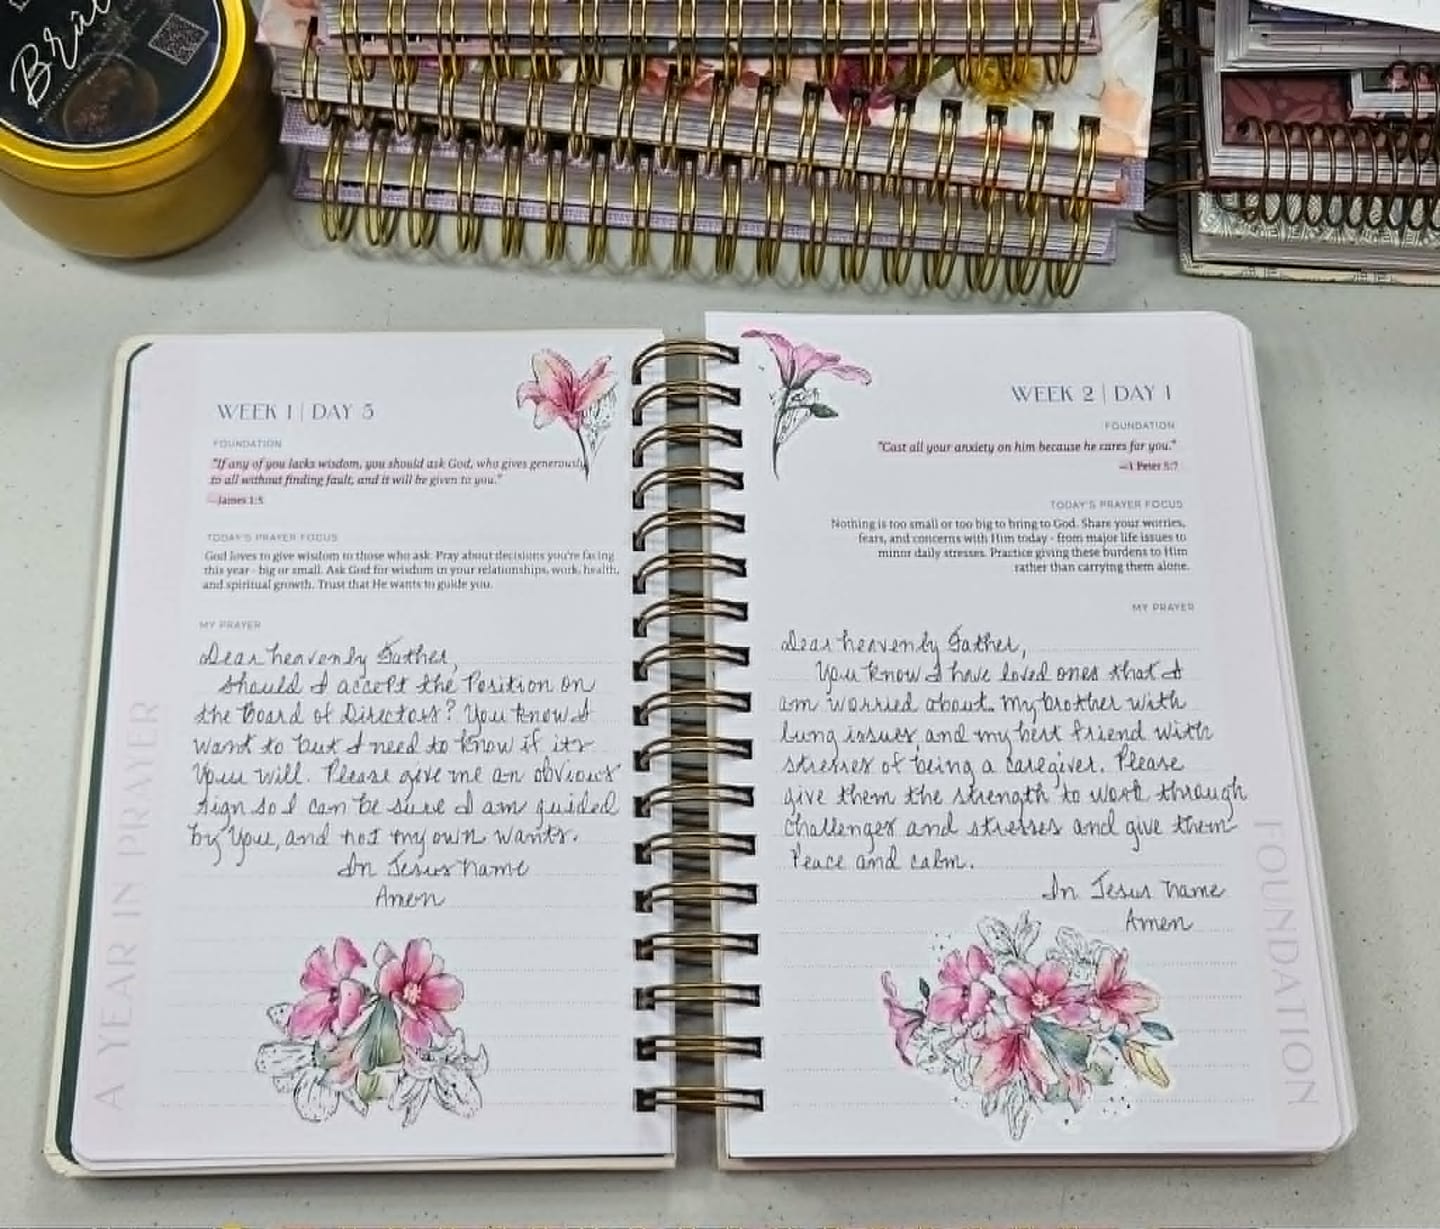 Brûl
WEEK 1 | DAY 5
FOUNDATION
"If any of you lacks wisdom, you should ask God, who gives generously
to all without finding fault, and it will be given to you."
—James 1:5
TODAY'S PRAYER FOCUS
God loves to give wisdom to those who ask. Pray about decisions you're facing
this year - big or small. Ask God for wisdom in your relationships, work, health,
and spiritual growth. Trust that He wants to guide you.
MY PRAYER
Dear heavenly Father,
Should I accept the Position on
the Board of Directors? You know I
want to but I need to know if its
Your will. Please give me an obvious
sign so I can be sure I am guided
by You, and not my own wants.
In Jesus name
Amen
A YEAR IN PRAYER
WEEK 2 | DAY 1
FOUNDATION
"Cast all your anxiety on him because he cares for you."
—1 Peter 5:7
TODAY'S PRAYER FOCUS
Nothing is too small or too big to bring to God. Share your worries,
fears, and concerns with Him today - from major life issues to
minor daily stresses. Practice giving these burdens to Him
rather than carrying them alone.
MY PRAYER
Dear heavenly Father,
You know I have loved ones that I
am worried about. my brother with
lung issues, and my best friend with
stresses of being a caregiver. Please
give them the strength to work through
challenges and stresses and give them
Peace and calm.
In Jesus name
Amen
FOUNDATION